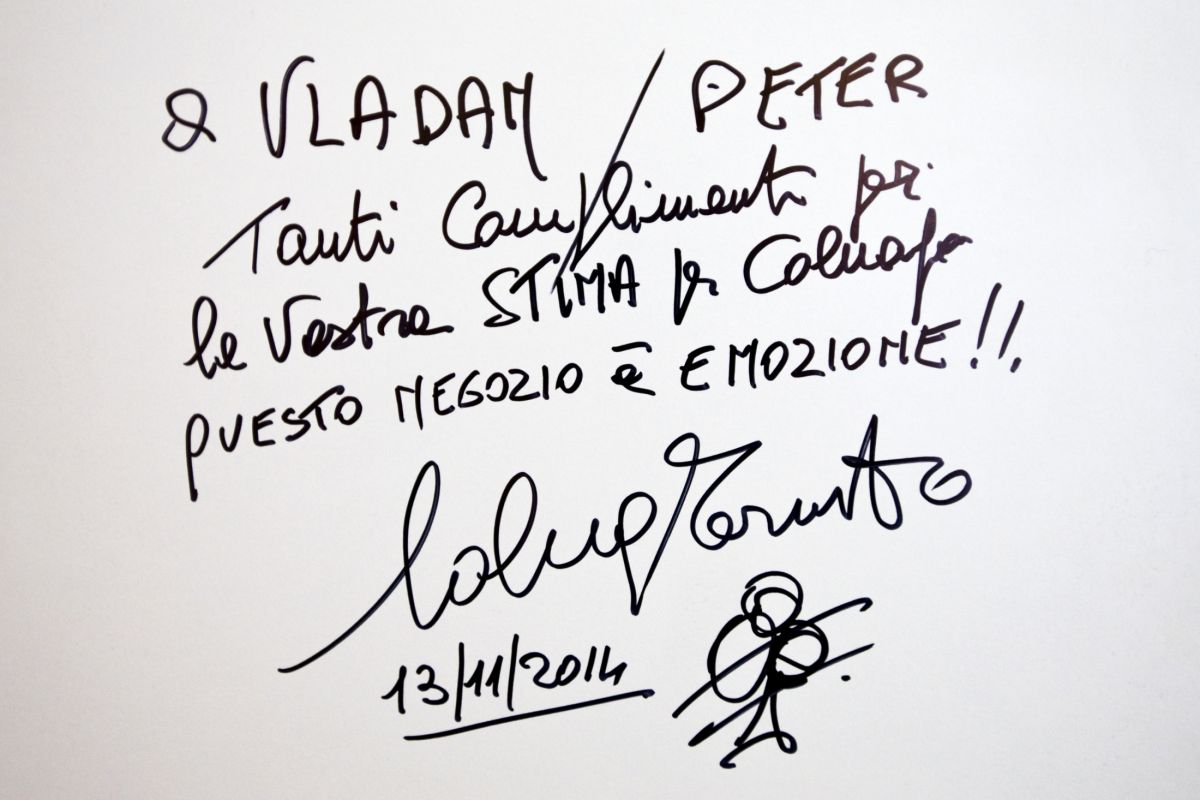 a VLADAN / PETER
Tanti Complimenti per
la Vostra STIMA per Colnago
QUESTO NEGOZIO è EMOZIONE!!
Colnago Ernesto
13/11/2014